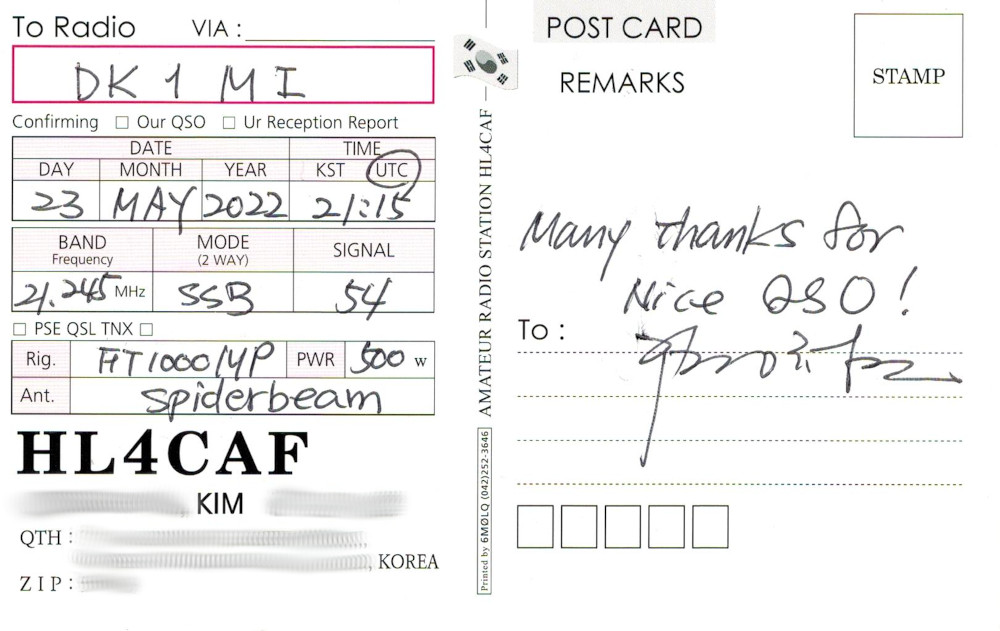 To Radio VIA :
DK1MI
Confirming □ Our QSO □ Ur Reception Report
DATE TIME
DAY MONTH YEAR KST UTC
23 MAY 2022 21:15
BAND MODE SIGNAL
Frequency (2 WAY)
21.245 MHz SSB 54
□ PSE QSL TNX □
Rig. FT1000MP PWR 500 W
Ant. spiderbeam
HL4CAF
KIM
QTH :
KOREA
ZIP :
AMATEUR RADIO STATION HL4CAF
Printed by 6MØLQ (042)252-3646
POST CARD
REMARKS
STAMP
Many thanks for
Nice QSO!
To :